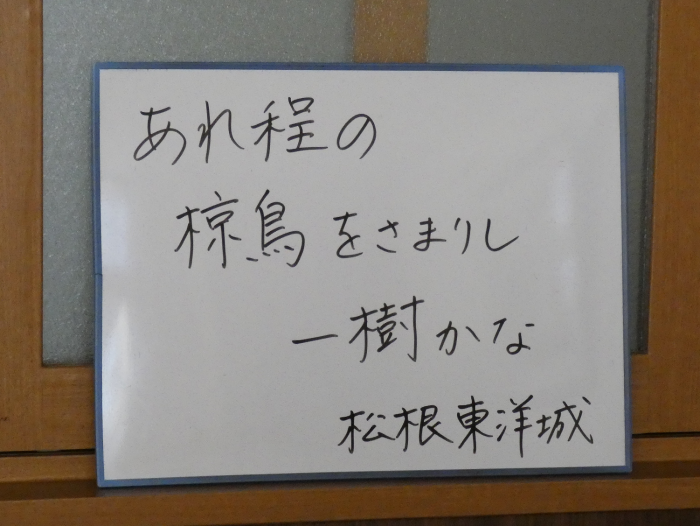 あれ程の
椋鳥をさまりし
一樹かな
松根東洋城